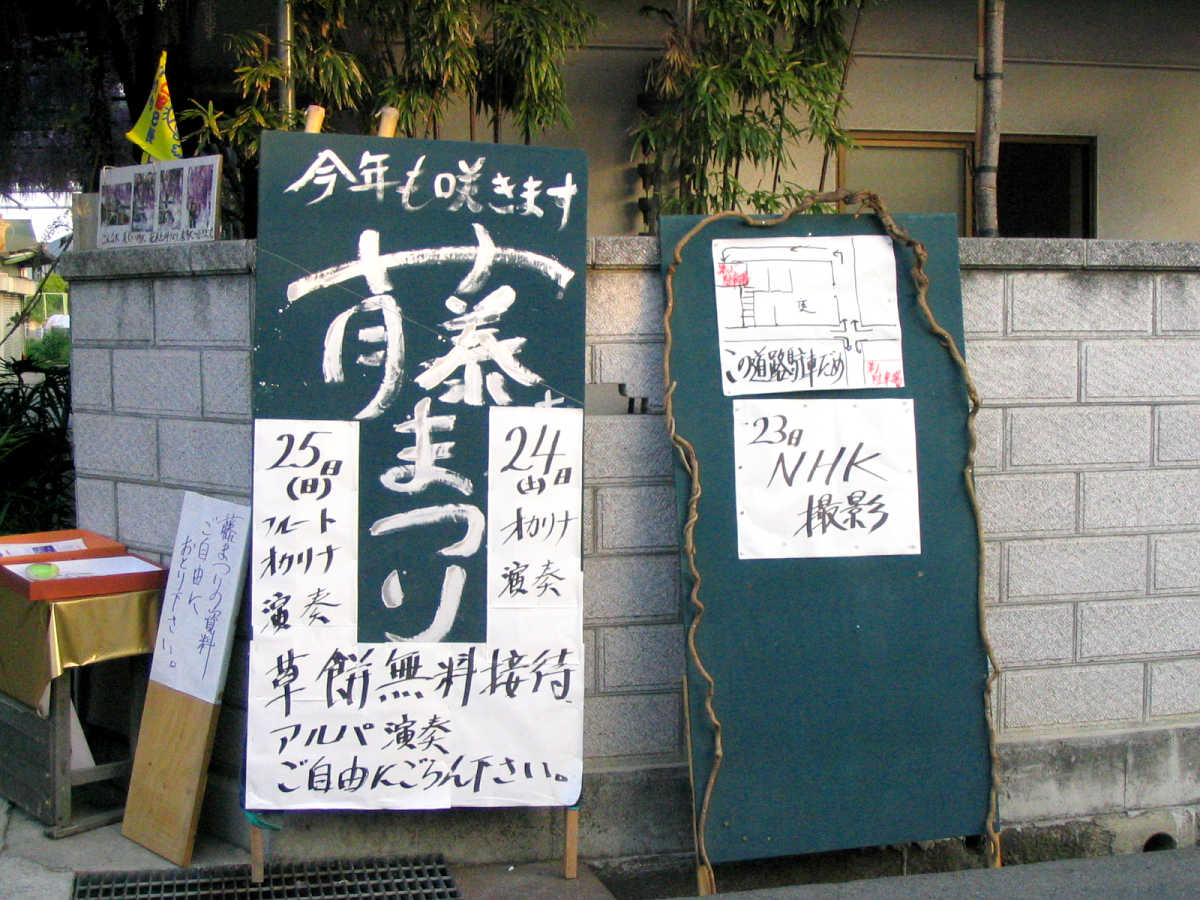 今年も咲きます
藤まつり
24日
(土)
オカリナ
演奏
25日
(日)
フルート
オカリナ
演奏
草餅無料接待
アルパ演奏
ご自由にごらん下さい。
藤まつりの資料
ご自由に
おとり下さい。
この道路駐車だめ
23日
NHK
撮影